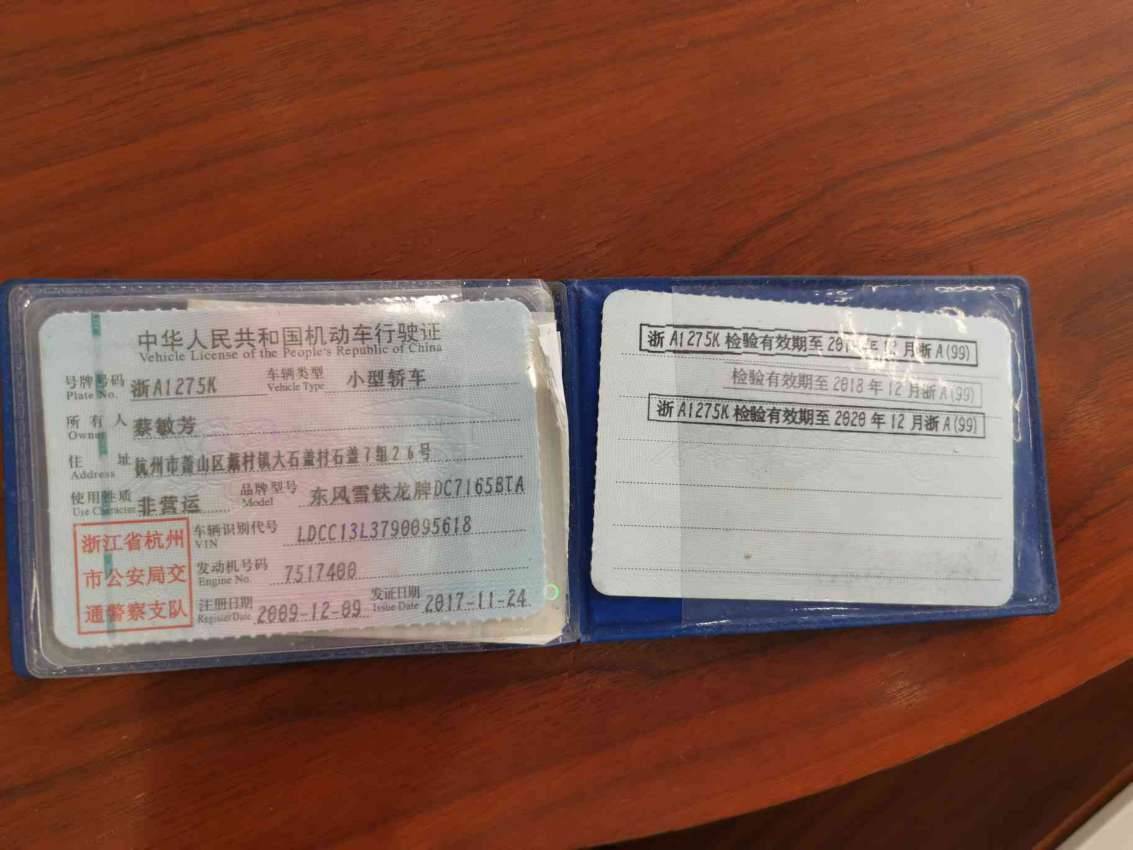 中华人民共和国机动车行驶证
Vehicle License of the People's Republic of China
号牌号码 浙A1275K 车辆类型 小型轿车
Plate No. Vehicle Type
所有人 蔡敏芳
Owner
住址 杭州市萧山区戴村镇大石盖村石盖7组26号
Address
使用性质 非营运 品牌型号 东风雪铁龙牌DC7165BTA
Use Character Model
浙江省杭州
市公安局交
通警察支队
车辆识别代号 LDCC13L3790095618
VIN
发动机号码 7517400
Engine No.
注册日期 2009-12-09 发证日期 2017-11-24
Register Date Issue Date
浙A1275K检验有效期至 年12月浙A(99)
检验有效期至2018年12月浙A(99)
浙A1275K检验有效期至2020年12月浙A(99)